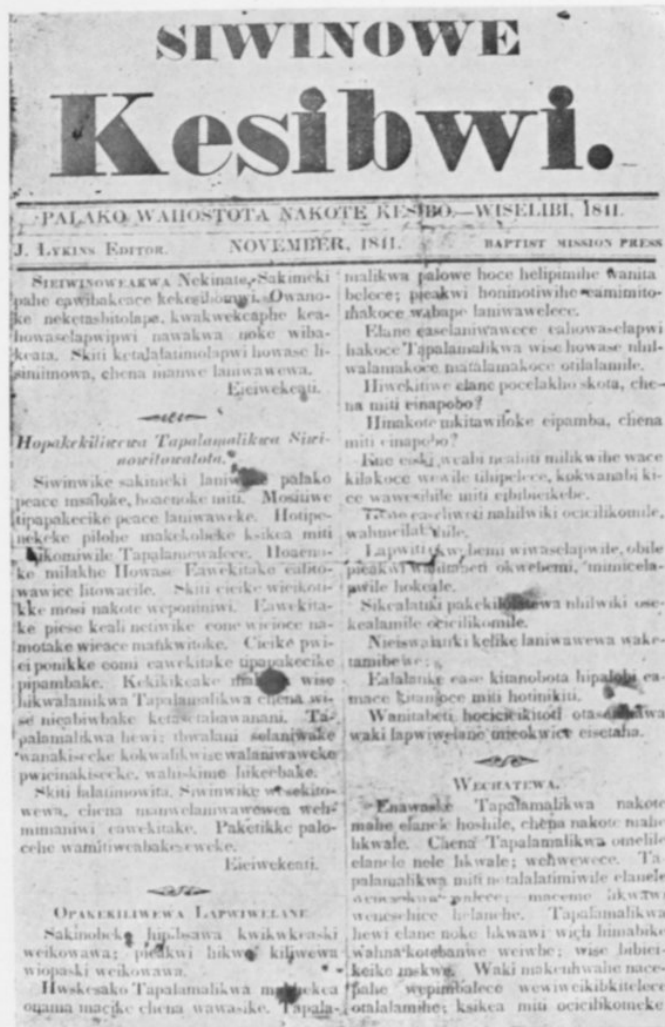 SIWINOWE
Kesibwi.
PALAKO WAHOSTOTA NAKOTE KESIBO,—WISELIBI, 1841.
J. LYKINS EDITOR. NOVEMBER, 1841. BAPTIST MISSION PRESS
SIEIWINOWEAKWA Nekinate, Sakimeki
pahe eawibakeace kekesibomwi. Owano-
ke neketashitolapa, kwakwekeaphe kea-
howaselapwipwi nawakwa noke wiba-
keata. Skiti ketalalatimolapwi howase li-
simimowa, chena manwe laniwawewa.
Eieiwekeati.
Hopakekiliwewa Tapalamalikwa Siwi-
nowitowatota.
Siwinwike sakimeki palako
peace msaloke, hoaenoke miti. Mositiwe
tipapakecike peace laniwaweke. Hotipe-
nekeke pilohe makekobeke ksikea miti
Tapalamewalece. Hoaeno-
ke milakhe Howase Eawekitake ealito-
wawice litowacile. Skiti cieike wieikoti-
kke mosi nakote weponiniwi. Eawekita-
ke piese keali netiwike cone wieioce na-
motake wieace mankwitoke. Cieike pwi-
ei ponikke comi eawekitake tipapakecike
pipambake. Kekikikeake wise
hikwalamikwa Tapalamalikwa chena wi-
se nieabiwbake ketasetahawanani. Ta-
palamalikwa hewi; thwalani selaniwake
wanakiseeke kokwalikwise walaniwaweke
pwieinakiseeke, wahiskime hikeebake.
Skiti lalatimowita, Siwinwike wesekito-
wewa, chena manwelaniwawewea weh-
mimaniwi eawekitake. Paketikke palo-
cehe wamitiweabakeeweke.
Eieiwekeati.
OPAKEKILIWEWA LAPWIWELANE
Sakinobeke hipibsawa kwikwkeaski
weikowawa; pieakwi hikwe kiliwewa
wiopaski weikowawa.
Hwskesako Tapalamalikwa
onama macike chena wawasike. Tapala-
malikwa palowe hoce helipimihe wanita
belece; pieakwi honinotiwihe eamimito-
hakoce wabape laniwawelece.
Elane easelaniwawece eahowaselapwi
hakoce Tapalamalikwa wise howase nhil-
walamakoce matalamakoce otilalamile.
Hiwekitiwe elane pocelakho skota, che-
na miti einapobo?
Hinakote mkitawiloke eipamba, chena
miti einapobo?
Kne weabi neahiti milikwihe wace
kilakoce wewile tihipelece, kokwanabi ki-
ce wawesihile miti eibibieikebe.
easehweti nahilwiki ocicilikomile,
Lapwiti bemi wiwaselapwile, obile
pieakwi wanitabeti okwebemi, mimicela-
pwile hokeale.
Sikealatiki nhilwiki ose-
kealamile ocicilikomile.
Nieiswalatiki kelike laniwawewa wake-
tamibewe;
Ealalatike ease kitanobota ea-
mace kitanoce miti hotinikiti.
Wanitabeti
waki lapwiwelane mieokwice eisetaha.
WECHATEWA.
Enawaske Tapalamalikwa nakote
mahe elanek hoshile, chena nakote mahe
hkwale. Chena Tapalamalikwa omelile
elanele nele hkwale; wehwewece. Ta-
palamalikwa miti netalalatimiwile elanele
maceme hkwawi
wenesehice helanehe. Tapalamalikwa
hewi elane noke hkwawi wich himabike
wahnakotebanwe weiwbe; wise bibiei-
keike mskwe. Waki makenhwahe nace-
pahe wepimbalece wewiweikibkitelece
otalalamhe; ksikea miti ocicibkomeke